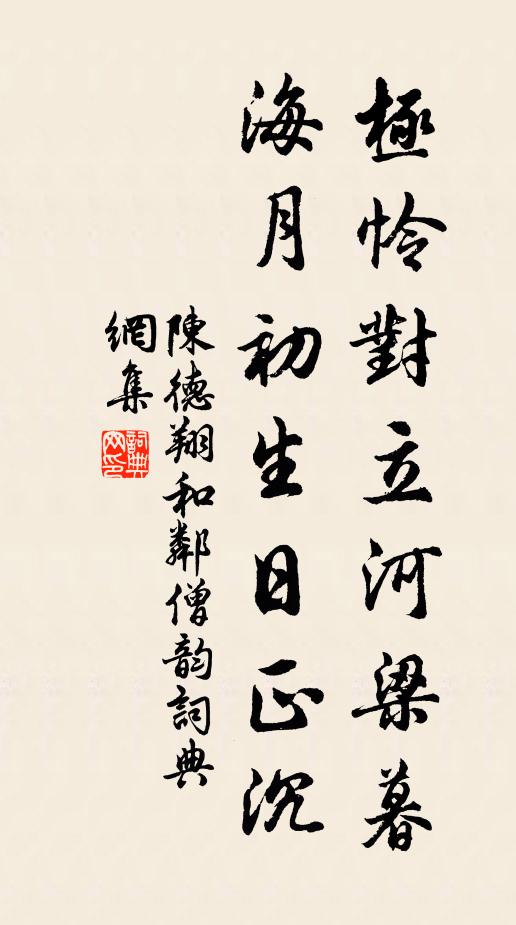 極怜對立河梁暮
海月初生日正沉
陳德翔和鄰僧韵詞典
網集
詞典網印